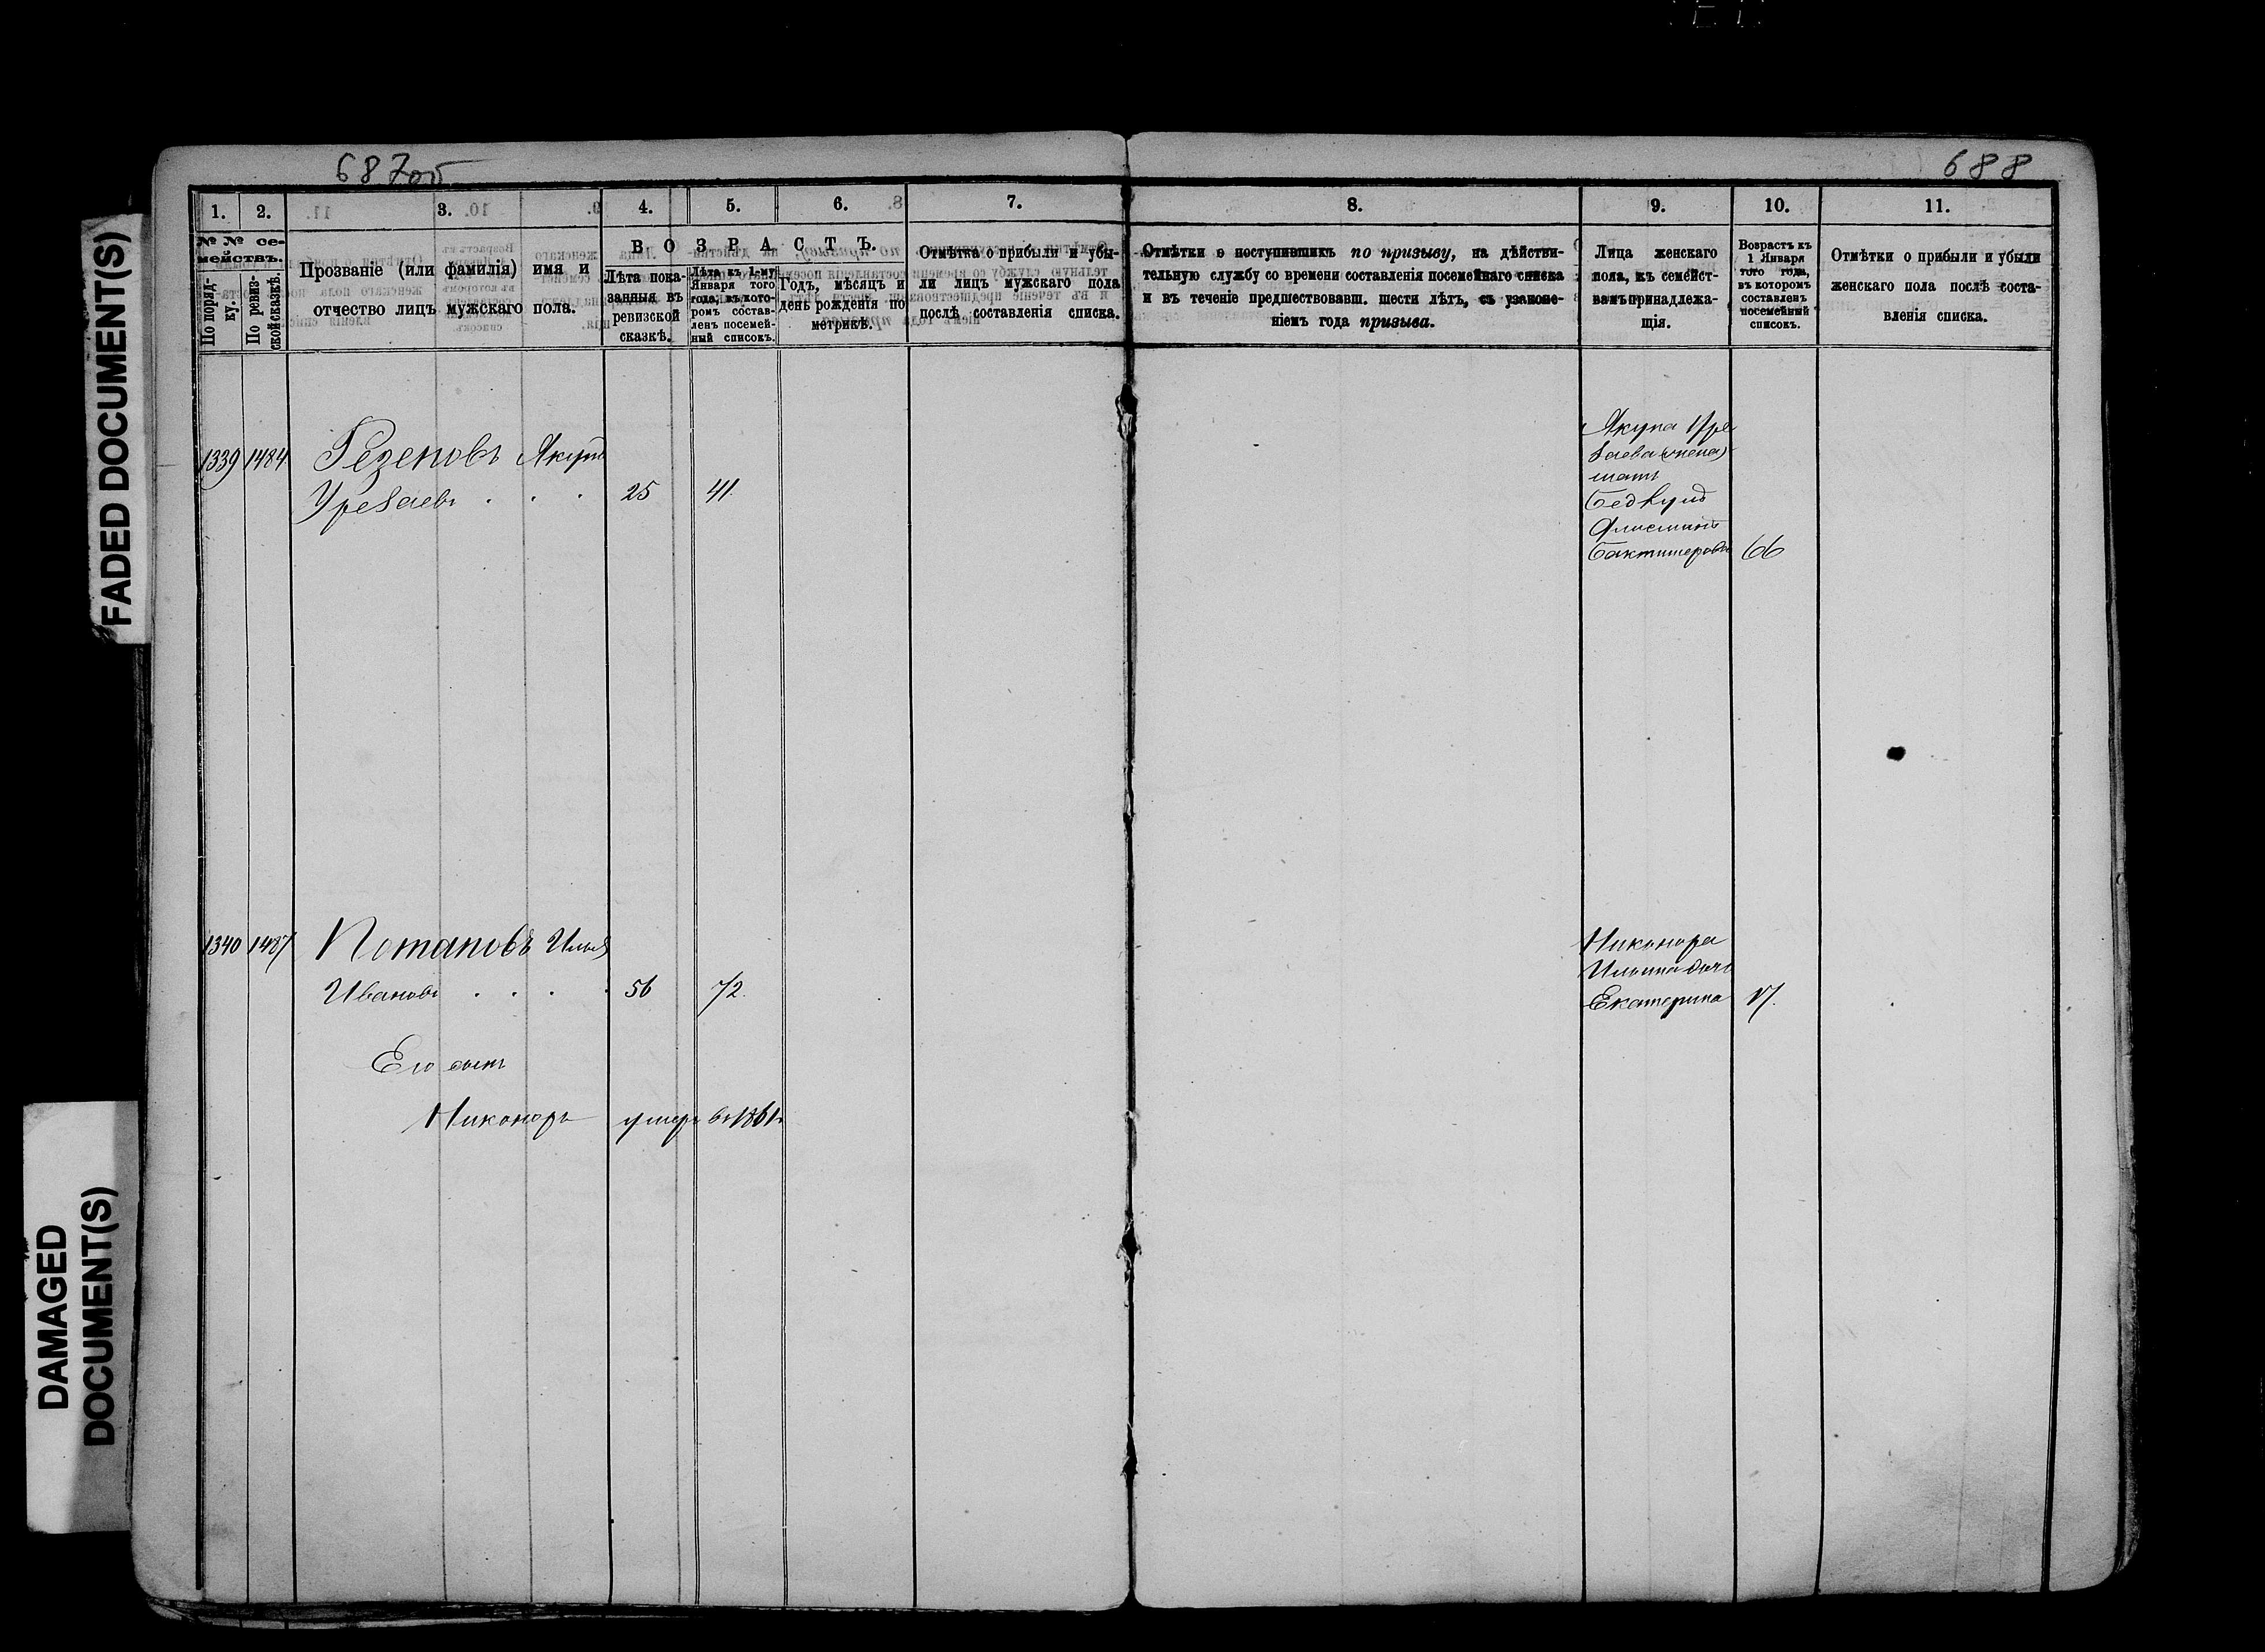 687об
688
FADED DOCUMENT(S)
DAMAGED
DOCUMENT(S)
1.
2.
3.
4.
5.
6.
7.
8.
9.
10.
11.
№ № се-
мействъ.
По поряд-
ку.
По ревиз-
ской сказкѣ.
Прозваніе (или фамилія) имя и
отчество лицъ мужскаго пола.
ВОЗРАСТЪ.
Лѣта пока-
занныя въ
ревизской
сказкѣ.
Лѣта къ 1-му
Января того
года, въ кото-
ромъ состав-
ленъ посемей-
ный списокъ.
Годъ, мѣсяцъ и
день рожденія по
метрикѣ.
Отмѣтка о прибыли и убы-
ли лицъ мужскаго пола
послѣ составленія списка.
Отмѣтки о поступившихъ по призыву, на дѣйстви-
тельную службу со времени составленія посемейнаго списка
и въ теченіе предшествовавш. шести лѣтъ, съ узаконе-
ніемъ года призыва.
Лица женскаго
пола, къ семейст-
вамъ принадлежа-
щія.
Возрастъ къ
1 Января
того года,
въ которомъ
составленъ
посемейный
списокъ.
Отмѣтки о прибыли и убыли
женскаго пола послѣ соста-
вленія списка.
1339 1484 Резеповъ Якупъ
Уреваевъ . . . 25 41.
Якупа Уре
ваева
мать
Бактишерова 66
1340 1487 Потаповъ Илья
Ивановъ . . . . 56 72.
Никонора
Ильина дочь
Екатерина 17.
Его сынъ
Никоноръ умеръ въ 1861г